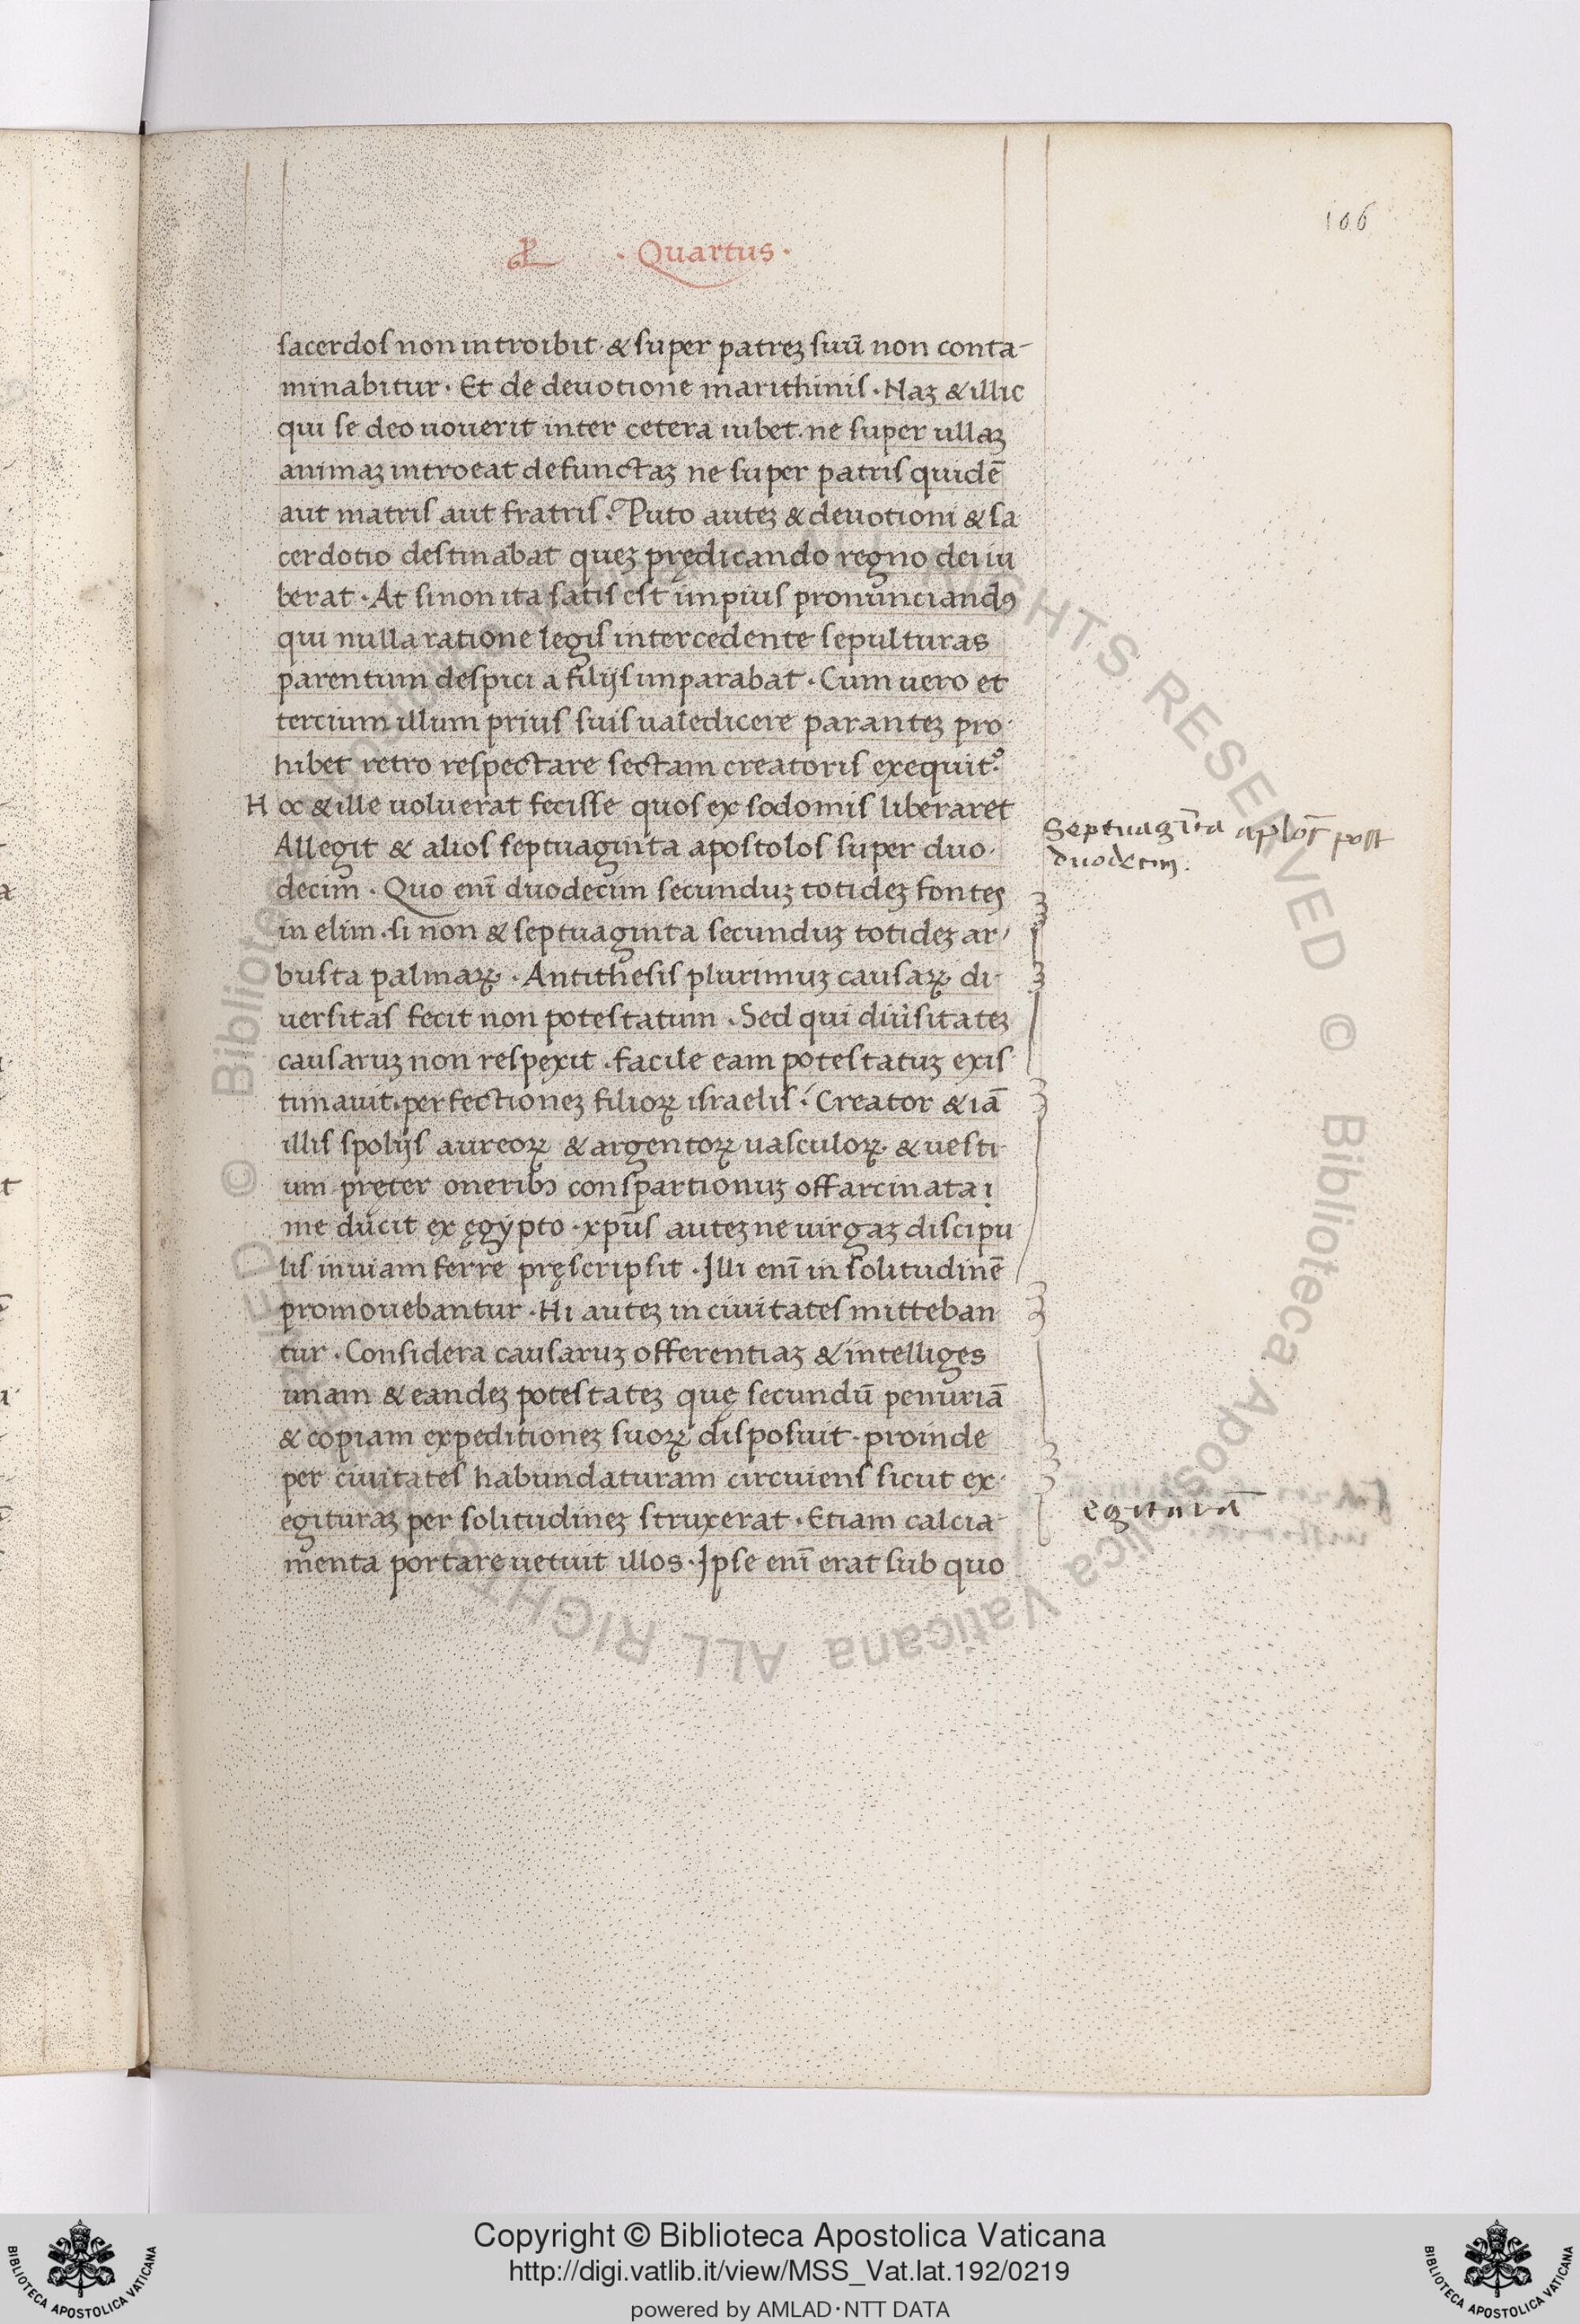 106
· Quartus ·
sacerdos non introibit · & super patreꝫ suū non conta-
minabitur · Et de deuotione marithinis · Naꝫ & illic
qui se deo uouerit inter cetera iubet · ne super ullaꝫ
animaꝫ introeat defunctaꝫ ne super patris quidē
aut matris aut fratris · Puto auteꝫ & deuotioni & sa
cerdotio destinabat queꝫ prędicando regno dei iu
berat · At si non ita satis est impius pronunciandꝰ
qui nulla ratione legis intercedente sepulturas
parentum despici a filijs imparabat · Cum uero et
tercium illum prius suis ualedicere paranteꝫ pro-
hibet retro respectare sectam creatoris exequit᷑
Hoc & ille uoluerat fecisse quos ex sodomis liberaret
Allegit & alios septuaginta apostolos super duo-
decim · Quo enī duodecim secunduꝫ totideꝫ fontes
in elim · si non & septuaginta secunduꝫ totideꝫ ar-
busta palmaꝝ · Antithesis plurimuꝫ causaꝝ di-
uersitas fecit non potestatum · Sed qui diu̾sitateꝫ
causaruꝫ non respexit · facile eam potestatuꝫ exis
timauit · perfectioneꝫ filioꝝ israelis · Creator & iā
illis spolijs aureoꝝ & argentoꝝ uasculoꝝ · & uesti-
um pręter oneribꝫ conspartionuꝫ offarcinata i
me ducit ex ęgypto · xp̄us auteꝫ ne uirgaꝫ discipu
lis in uiam ferre pręscripsit · Illi enī in solitudinē
promouebantur · Hi auteꝫ in ciuitates mitteban
tur · Considera causaruꝫ offerentiaꝫ & intelliges
unam & eandeꝫ potestateꝫ quę secundū penuriā
& copiam expeditioneꝫ suoꝝ disposuit · proinde
per ciuitates habundaturam circuiens sicut ex-
egituraꝫ per solitudineꝫ struxerat · Etiam calcia-
menta portare uetuit illos · Ipse enī erat sub quo
Septuagīta aplōs post
duodecim.
egiturā
© Biblioteca Apostolica Vaticana ALL RIGHTS RESERVED
Copyright © Biblioteca Apostolica Vaticana
http://digi.vatlib.it/view/MSS_Vat.lat.192/0219
powered by AMLAD·NTT DATA
BIBLIOTECA APOSTOLICA VATICANA
BIBLIOTECA APOSTOLICA VATICANA